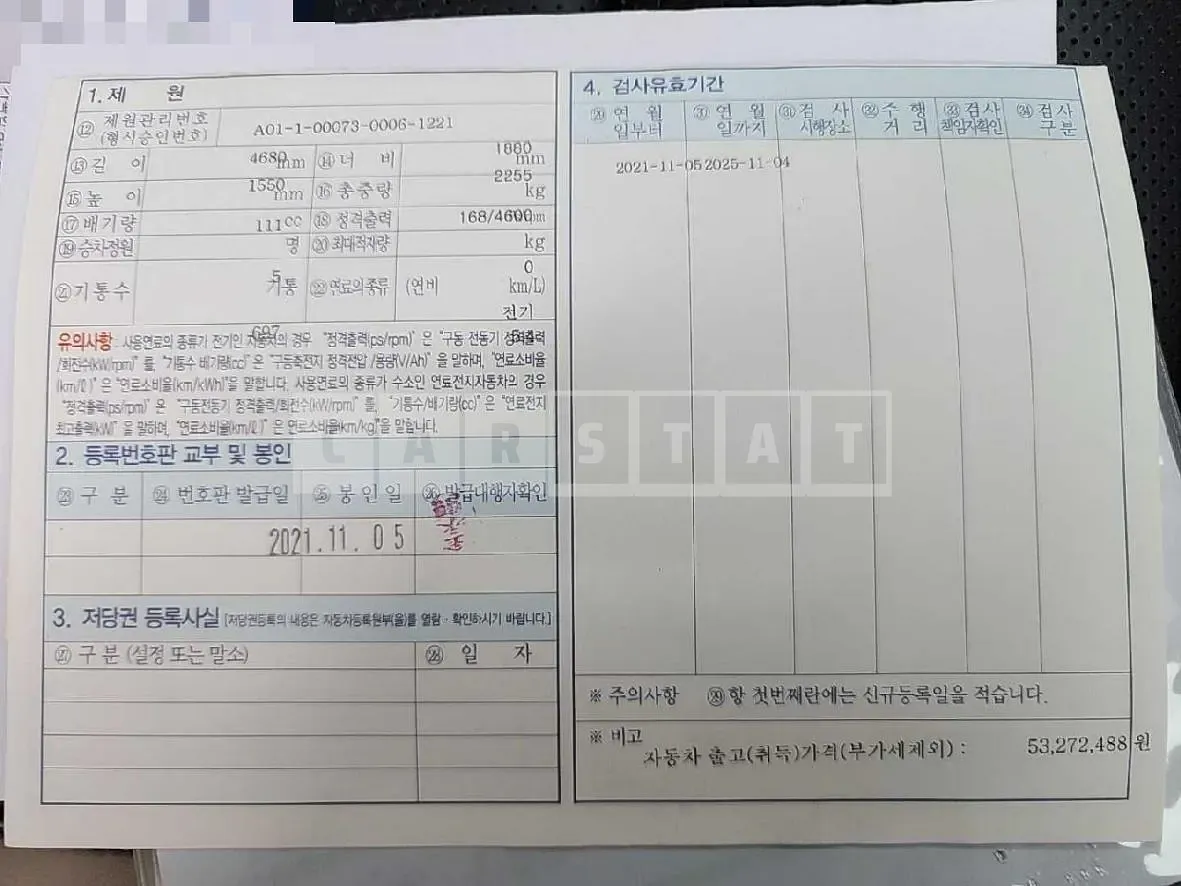 1. 제 원
⑫ 제원관리번호
(형식승인번호)
A01-1-00073-0006-1221
⑬ 길 이 4680mm ⑭ 너 비 1880mm
⑮ 높 이 1550mm ⑯ 총중량 2255kg
⑰ 배기량 111cc ⑱ 정격출력 168/4600rpm
⑲ 승차정원 명 ⑳ 최대적재량 kg
㉑ 기통수 5기통 ㉒ 연료의종류 0 (연비 km/L)
전기
697
유의사항 : 사용연료의 종류가 전기인 자동차의 경우 "정격출력(ps/rpm)" 은 "구동 전동기 정격출력
/회전수(kW/rpm)" 를, "기통수 배기량(cc)" 은 "구동축전지 정격전압 /용량(V/Ah)" 을 말하며, "연료소비율
(km/ℓ)" 은 "연료소비율(km/kWh)"을 말합니다. 사용연료의 종류가 수소인 연료전지자동차의 경우
"정격출력(ps/rpm)" 은 "구동전동기 정격출력/회전수(kW/rpm)" 를, "기통수/배기량(cc)" 은 "연료전지
최고출력(kW)" 을 말하며, "연료소비율(km/ℓ)" 은 연료소비율(km/kg)"을 말합니다.
2. 등록번호판 교부 및 봉인
㉓ 구 분 ㉔ 번호판 발급일 ㉕ 봉 인 일 ㉖ 발급대행자확인
2021.11. 0 5
3. 저당권 등록사실 [저당권등록의 내용은 자동차등록원부(을)를 열람 · 확인하시기 바랍니다.]
㉗ 구 분 (설정 또는 말소) ㉘ 일 자
4. 검사유효기간
㉙ 연 월 일부터 ㉚ 연 월 일까지 ㉛ 검 사 시행장소 ㉜ 주 행 거 리 ㉝ 검사 책임자확인 ㉞ 검사 구분
2021-11-05 2025-11-04
※ 주의사항 ㉙ 항 첫번째란에는 신규등록일을 적습니다.
※ 비고
자동차 출고(취득)가격(부가세제외) : 53,272,488 원
CARSTAT